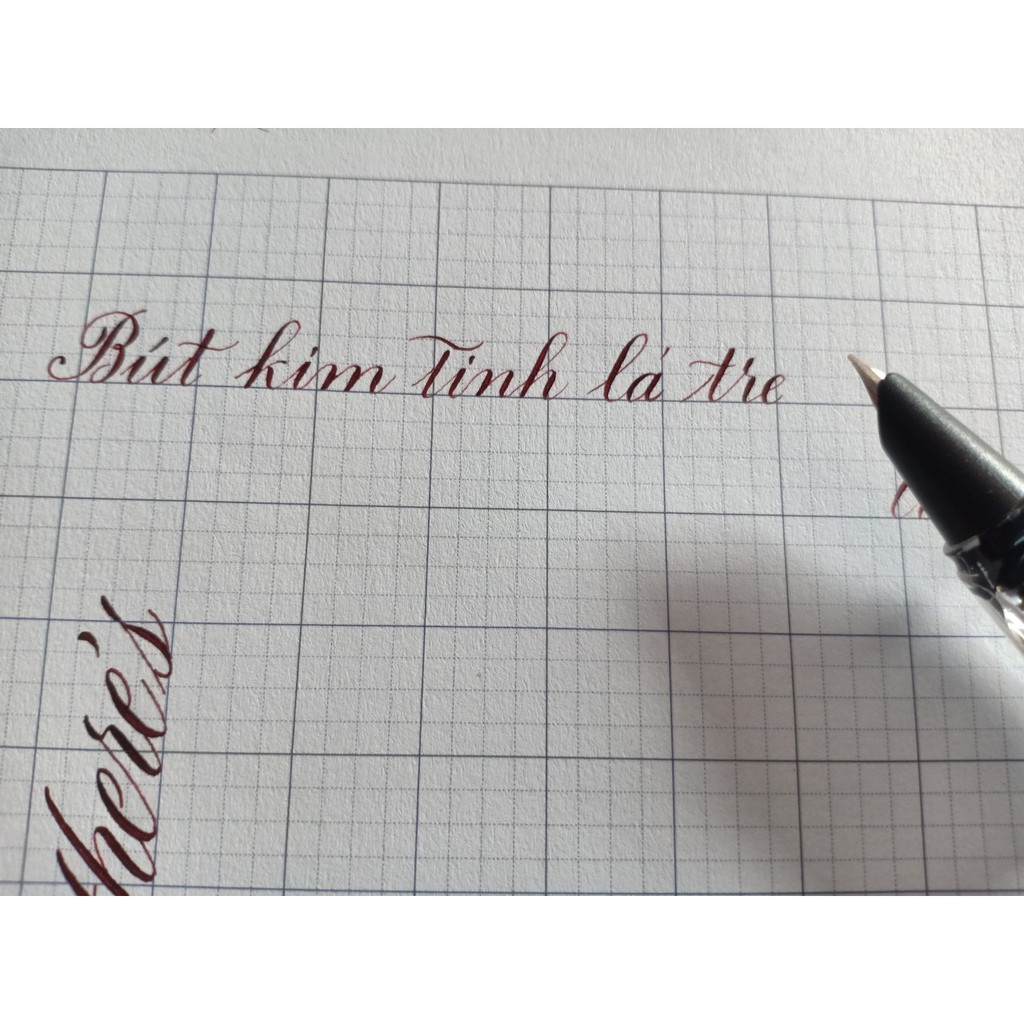 Bút kim Tinh lá tre
there's